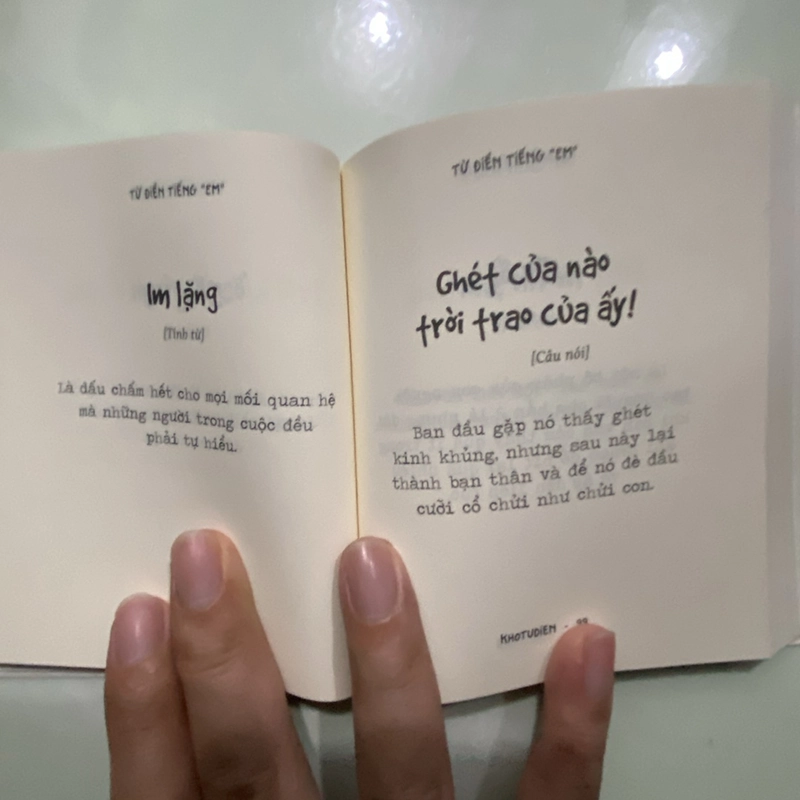 TỪ ĐIỂN TIẾNG "EM"
Im lặng
[Tính từ]
Là dấu chấm hết cho mọi mối quan hệ
mà những người trong cuộc đều
phải tự hiểu.
TỪ ĐIỂN TIẾNG "EM"
Ghét của nào
trời trao của ấy!
[Câu nói]
Ban đầu gặp nó thấy ghét
kinh khủng, nhưng sau này lại
thành bạn thân và để nó đè đầu
cưỡi cổ chửi như chửi con.
KHOTUDIEN -